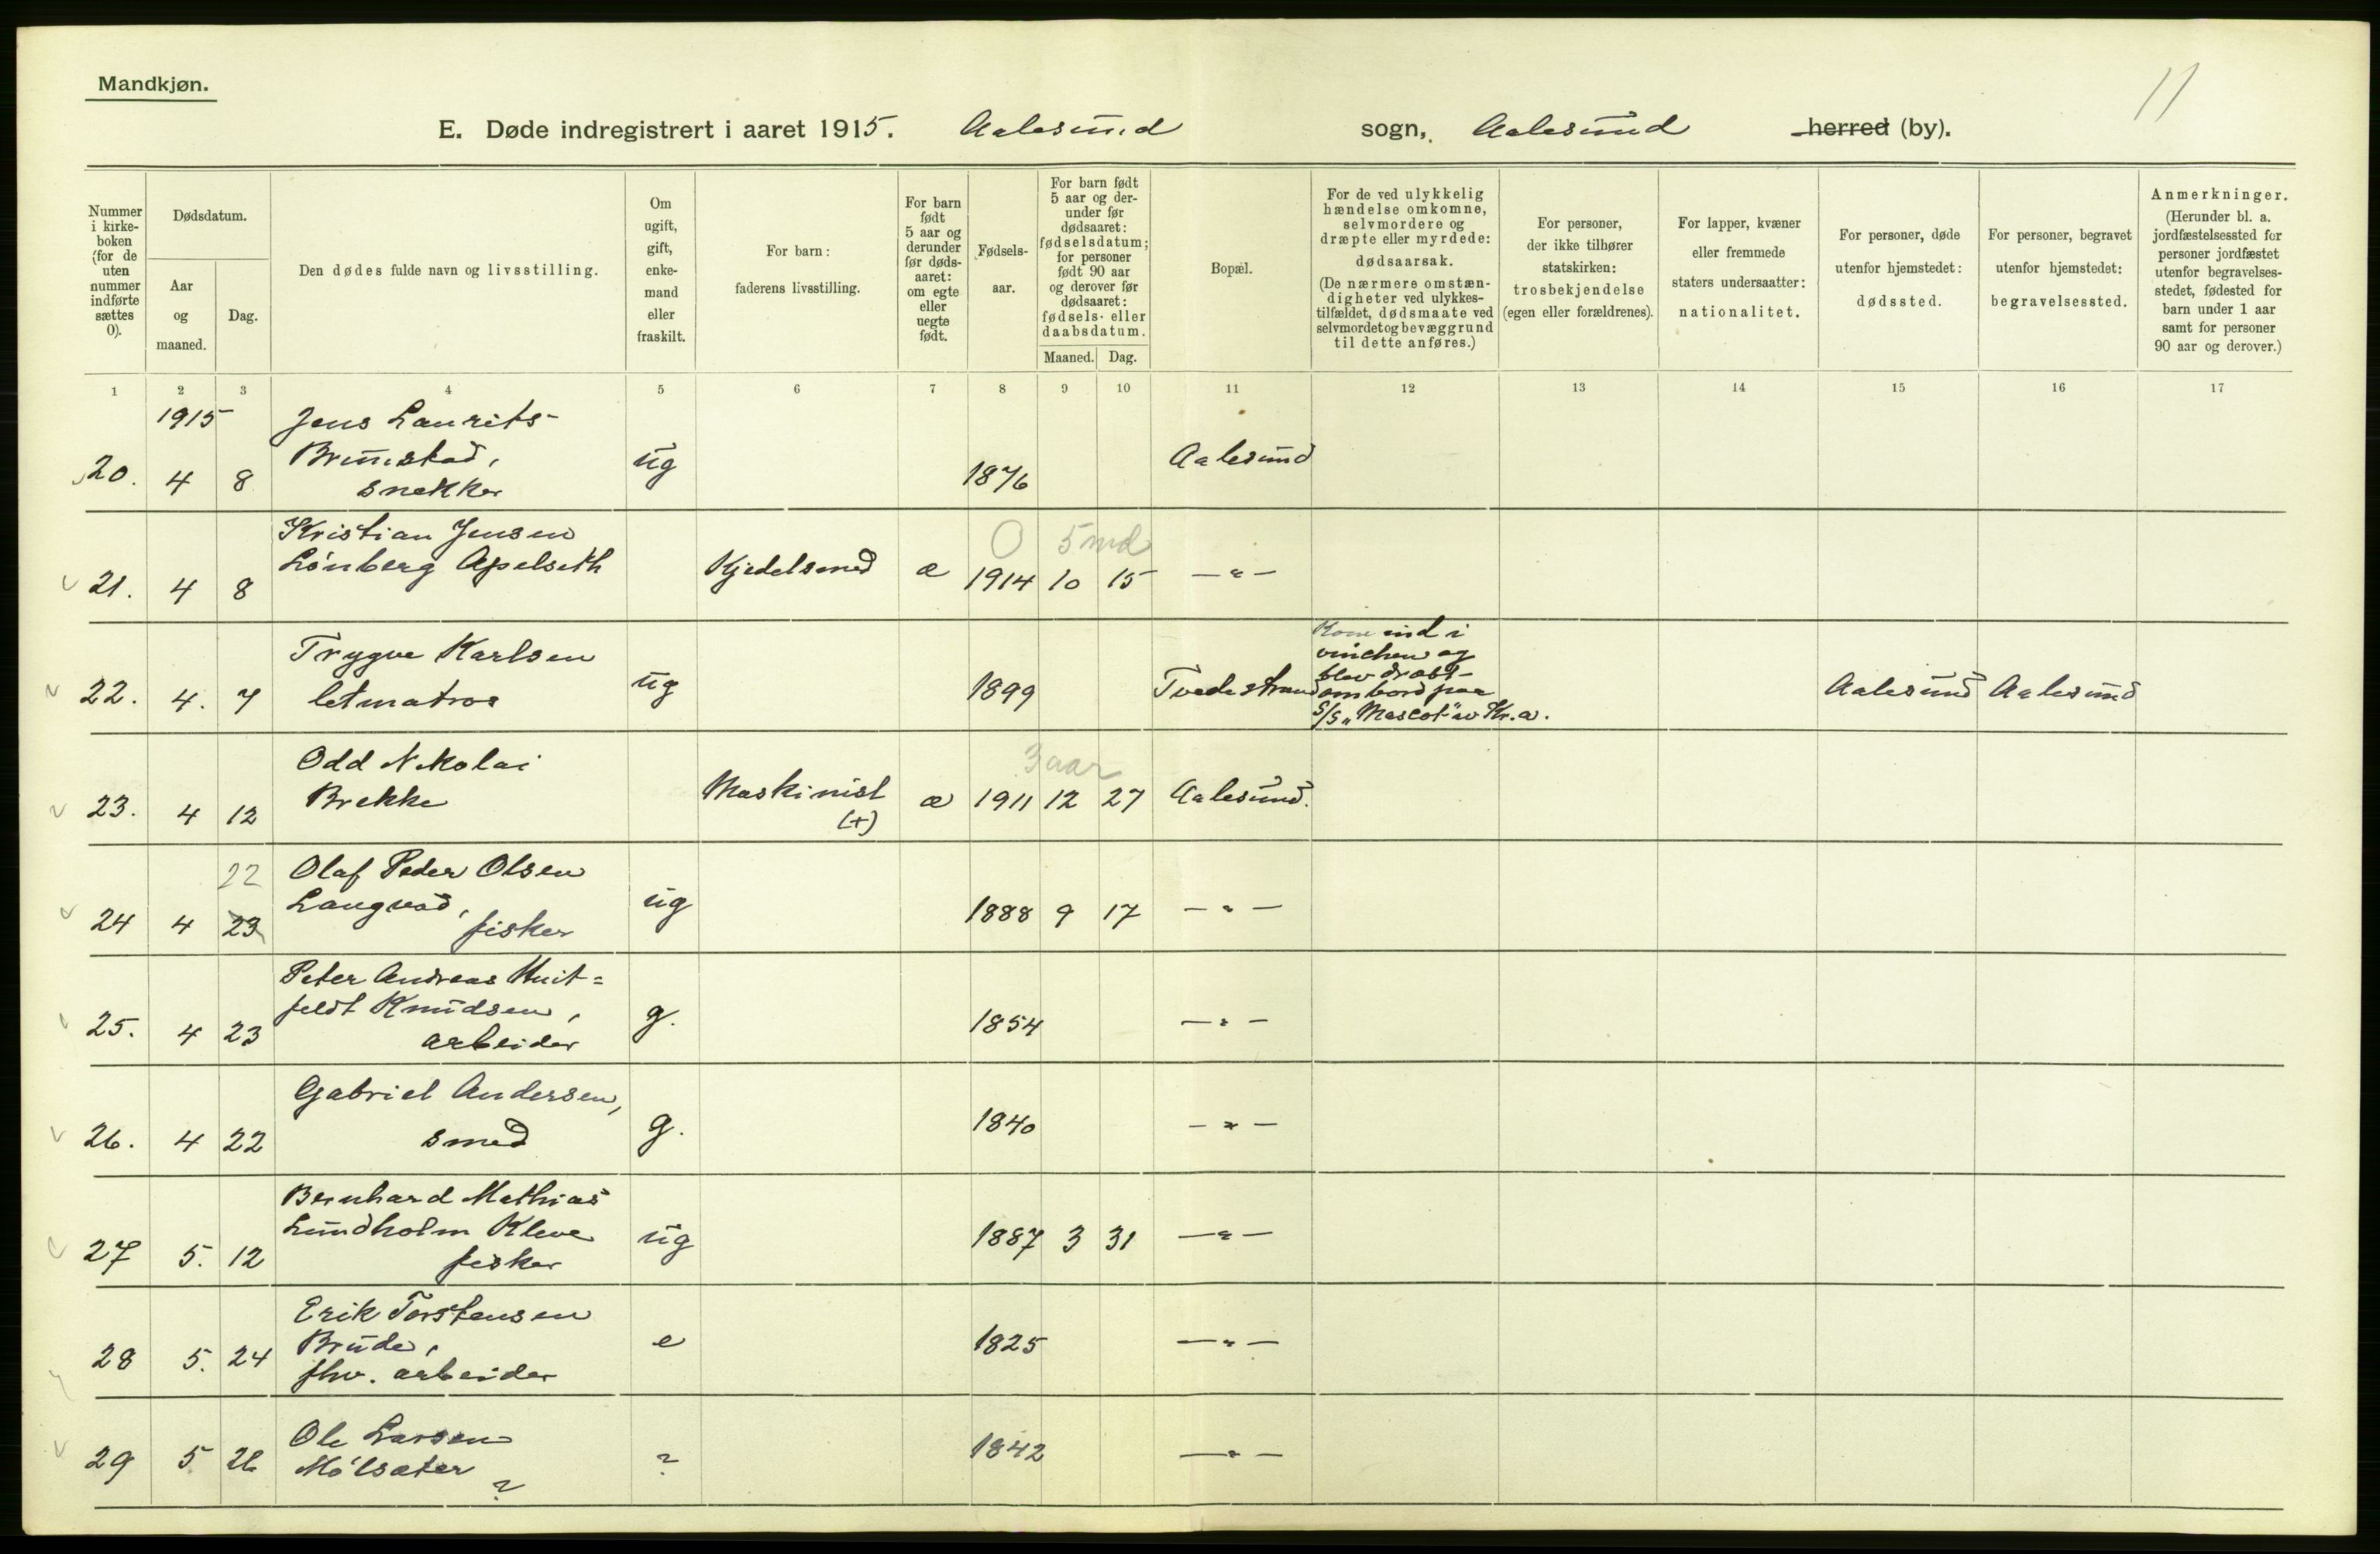 Mandkjøn.
11
E. Døde indregistrert i aaret 1915. Aalesund sogn, Aalesund herred (by).
Nummer i kirke-boken (for de uten nummer indførte sættes 0).
Dødsdatum.
Aar og maaned.
Dag.
Den dødes fulde navn og livsstilling.
Om ugift, gift, enke-mand eller fraskilt.
For barn: faderens livsstilling.
For barn født 5 aar og derunder før døds-aaret: om egte eller uegte født.
Fødsels-aar.
For barn født 5 aar og der-under før dødsaaret: fødselsdatum; for personer født 90 aar og derover før dødsaaret: fødsels- eller daabsdatum.
Maaned. Dag.
Bopæl.
For de ved ulykkelig hændelse omkomne, selvmordere og dræpte eller myrdede: dødsaarsak.
(De nærmere omstæn-digheter ved ulykkes-tilfældet, dødsmaate ved selvmordet og bevæggrund til dette anføres.)
For personer, der ikke tilhører statskirken: trosbekjendelse (egen eller forældrenes).
For lapper, kvæner eller fremmede staters undersaatter: nationalitet.
For personer, døde utenfor hjemstedet: dødssted.
For personer, begravet utenfor hjemstedet: begravelsessted.
Anmerkninger.
(Herunder bl. a. jordfæstelsessted for personer jordfæstet utenfor begravelses-stedet, fødested for barn under 1 aar samt for personer 90 aar og derover.)
1 2 3 4 5 6 7 8 9 10 11 12 13 14 15 16 17
1915 Jens Laurits
Brunstad,
20. 4 8 snekker ug 1876 Aalesund
Kristian Jensen 0 5 md
Lønberg Apelseth
21. 4 8 Kjedelsmed æ 1914 10 15 — " —
Trygve Karlsen
22. 4. 7 letmatros ug 1899 Tvedestrand
Kom ind i
vinchen og
blev dræbt
ombord paa
S/S "Mascot" av Kr.a.
Aalesund Aalesund
Odd Nikolai 3 aar
Brekke
23. 4 12 Maskinist (+) æ 1911 12 27 Aalesund.
22 Olaf Peder Olsen
Langvad,
24 4 23 fisker ug 1888 9 17 — " —
Peter Andreas Huit=
feldt Knudsen,
25. 4 23 arbeider g. 1854 — " —
Gabriel Andersen,
26. 4 22 smed g. 1840 — " —
Bernhard Mathias
Lundholm Kleve
27 5. 12 fisker ug 1887 3 31 — " —
Erik Torstensen
Brude,
28 5. 24 fhv. arbeider e 1825 — " —
Ole Larsen
29 5 26 Mølsæter ? ? 1842 — " —